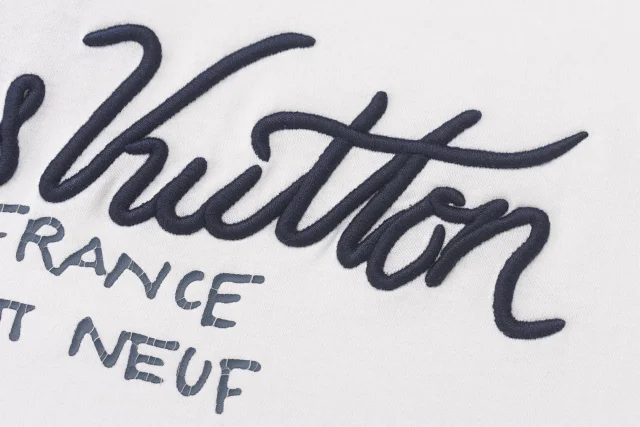 s Vuitton
FRANCE
T NEUF